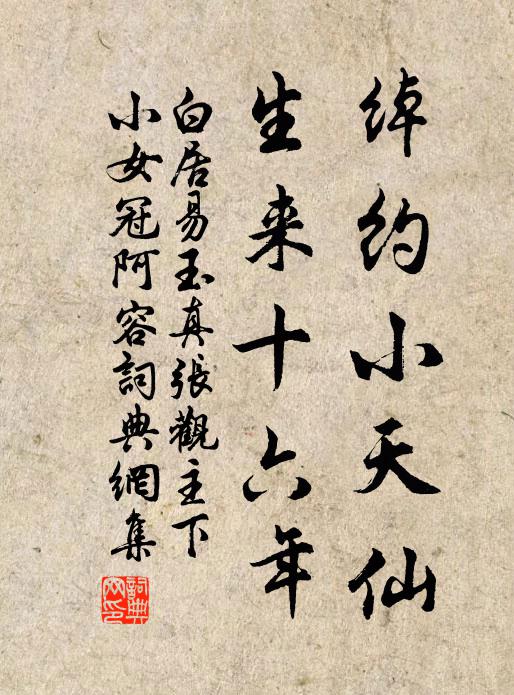 绰约小天仙
生来十六年
白居易玉真張觀主下
小女冠阿容詞典網集
詞典
网印